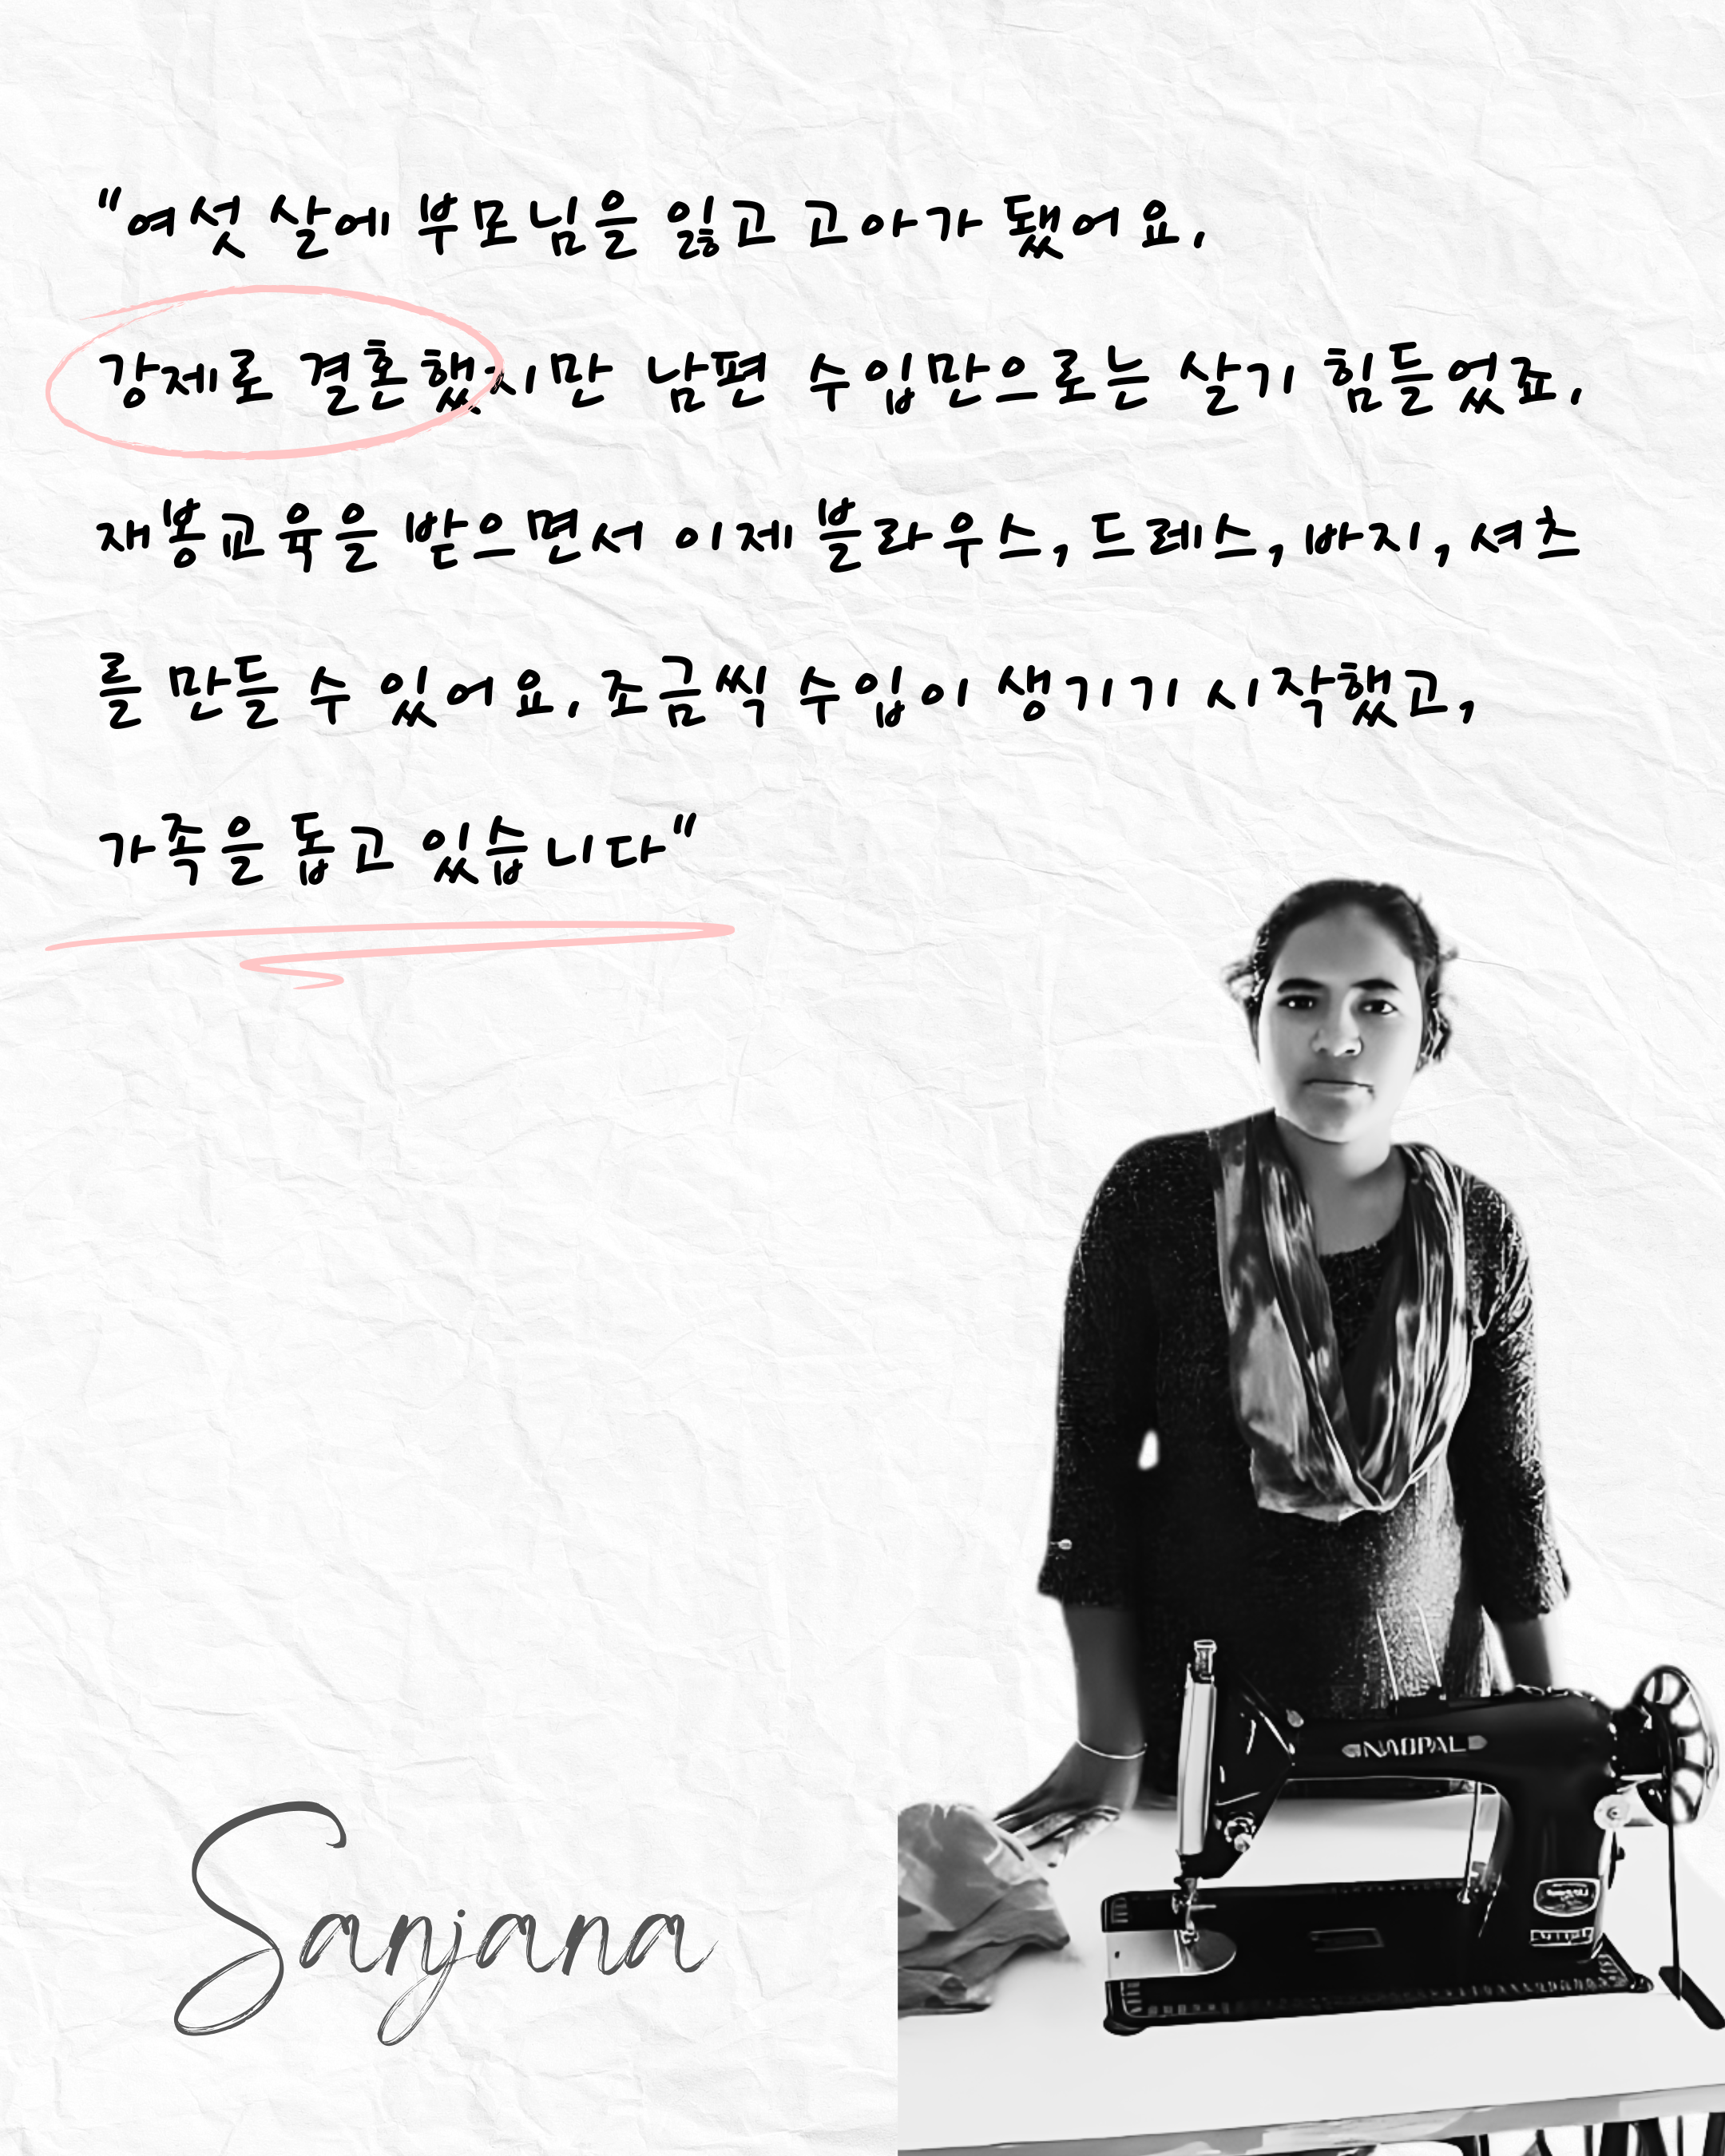 "여섯 살에 부모님을 잃고 고아가 됐어요.
강제로 결혼했지만 남편 수입만으로는 살기 힘들었죠.
재봉교육을 받으면서 이제 블라우스, 드레스, 바지, 셔츠
를 만들 수 있어요. 조금씩 수입이 생기기 시작했고,
가족을 돕고 있습니다"
Sanjana